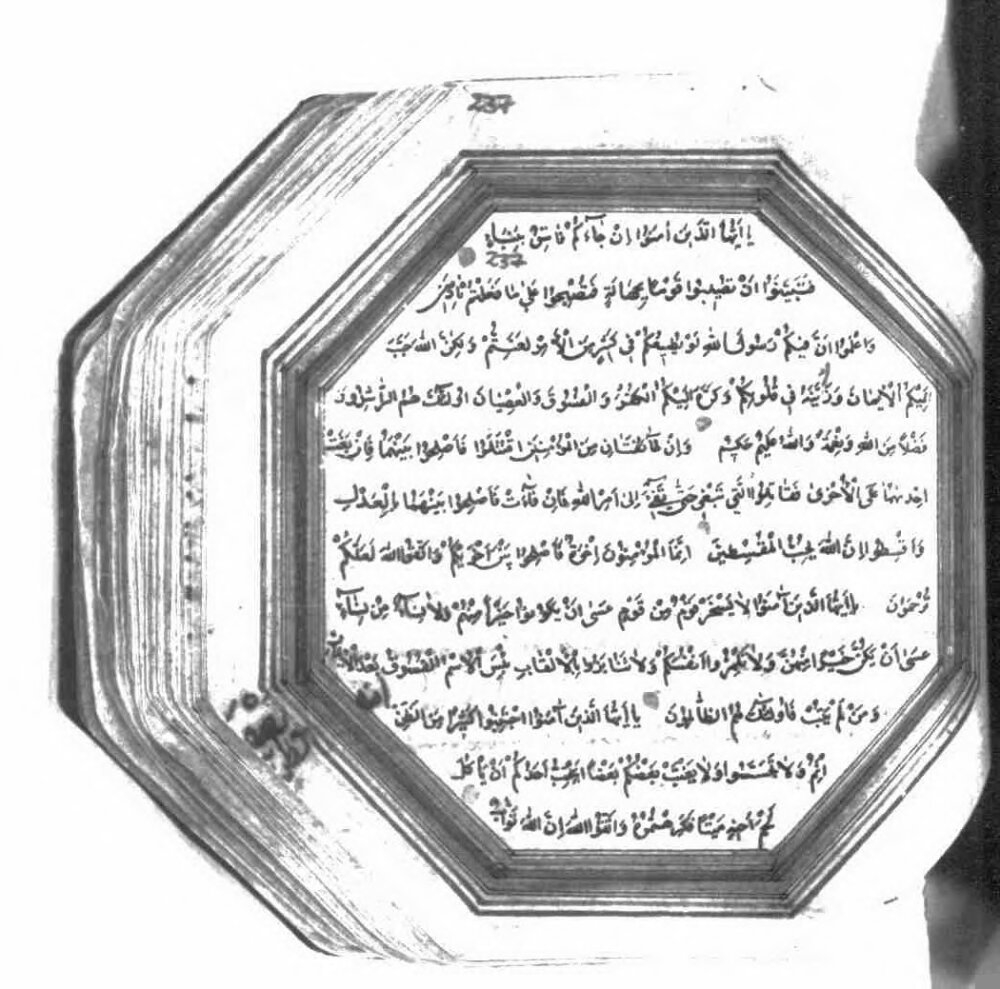 237
يا أيها الذين آمنوا إن جاءكم فاسق بنباء
237
فتبينوا أن تصيبوا قوما بجهالة فتصبحوا على ما فعلتم نادمين
واعلموا أن فيكم رسول الله لو يطيعكم في كثير من الأمر لعنتم ولكن الله حبب
إليكم الإيمان وزينه في قلوبكم وكره إليكم الكفر والفسوق والعصيان اولئك هم الراشدون
فضلا من الله ونعمة والله عليم حكيم وإن طائفتان من المؤمنين اقتتلوا فأصلحوا بينهما فإن بغت
احديهما على الأخرى فقاتلوا التي تبغى حتى تفئ إلى أمر الله فإن فاءت فأصلحوا بينهما بالعدل
وأقسطوا إن الله يحب المقسطين انما المؤمنون إخوة فأصلحوا بين أخويكم واتقوا الله لعلكم
ترحمون يا أيها الذين آمنوا لا يسخر قوم من قوم عسى أن يكونوا خيرا منهم ولا نساء من نساء
عسى أن يكن خيرا منهن ولا تلمزوا أنفسكم ولا تنابزوا بالألقاب بئس الاسم الفسوق بعد الإيمان
ومن لم يتب فأولئك هم الظالمون يا أيها الذين آمنوا اجتنبوا كثيرا من الظن
إثم ولا تجسسوا ولا يغتب بعضكم بعضا أيحب أحدكم أن يأكل
لحم أخيه ميتا فكرهتموه واتقوا الله إن الله تواب